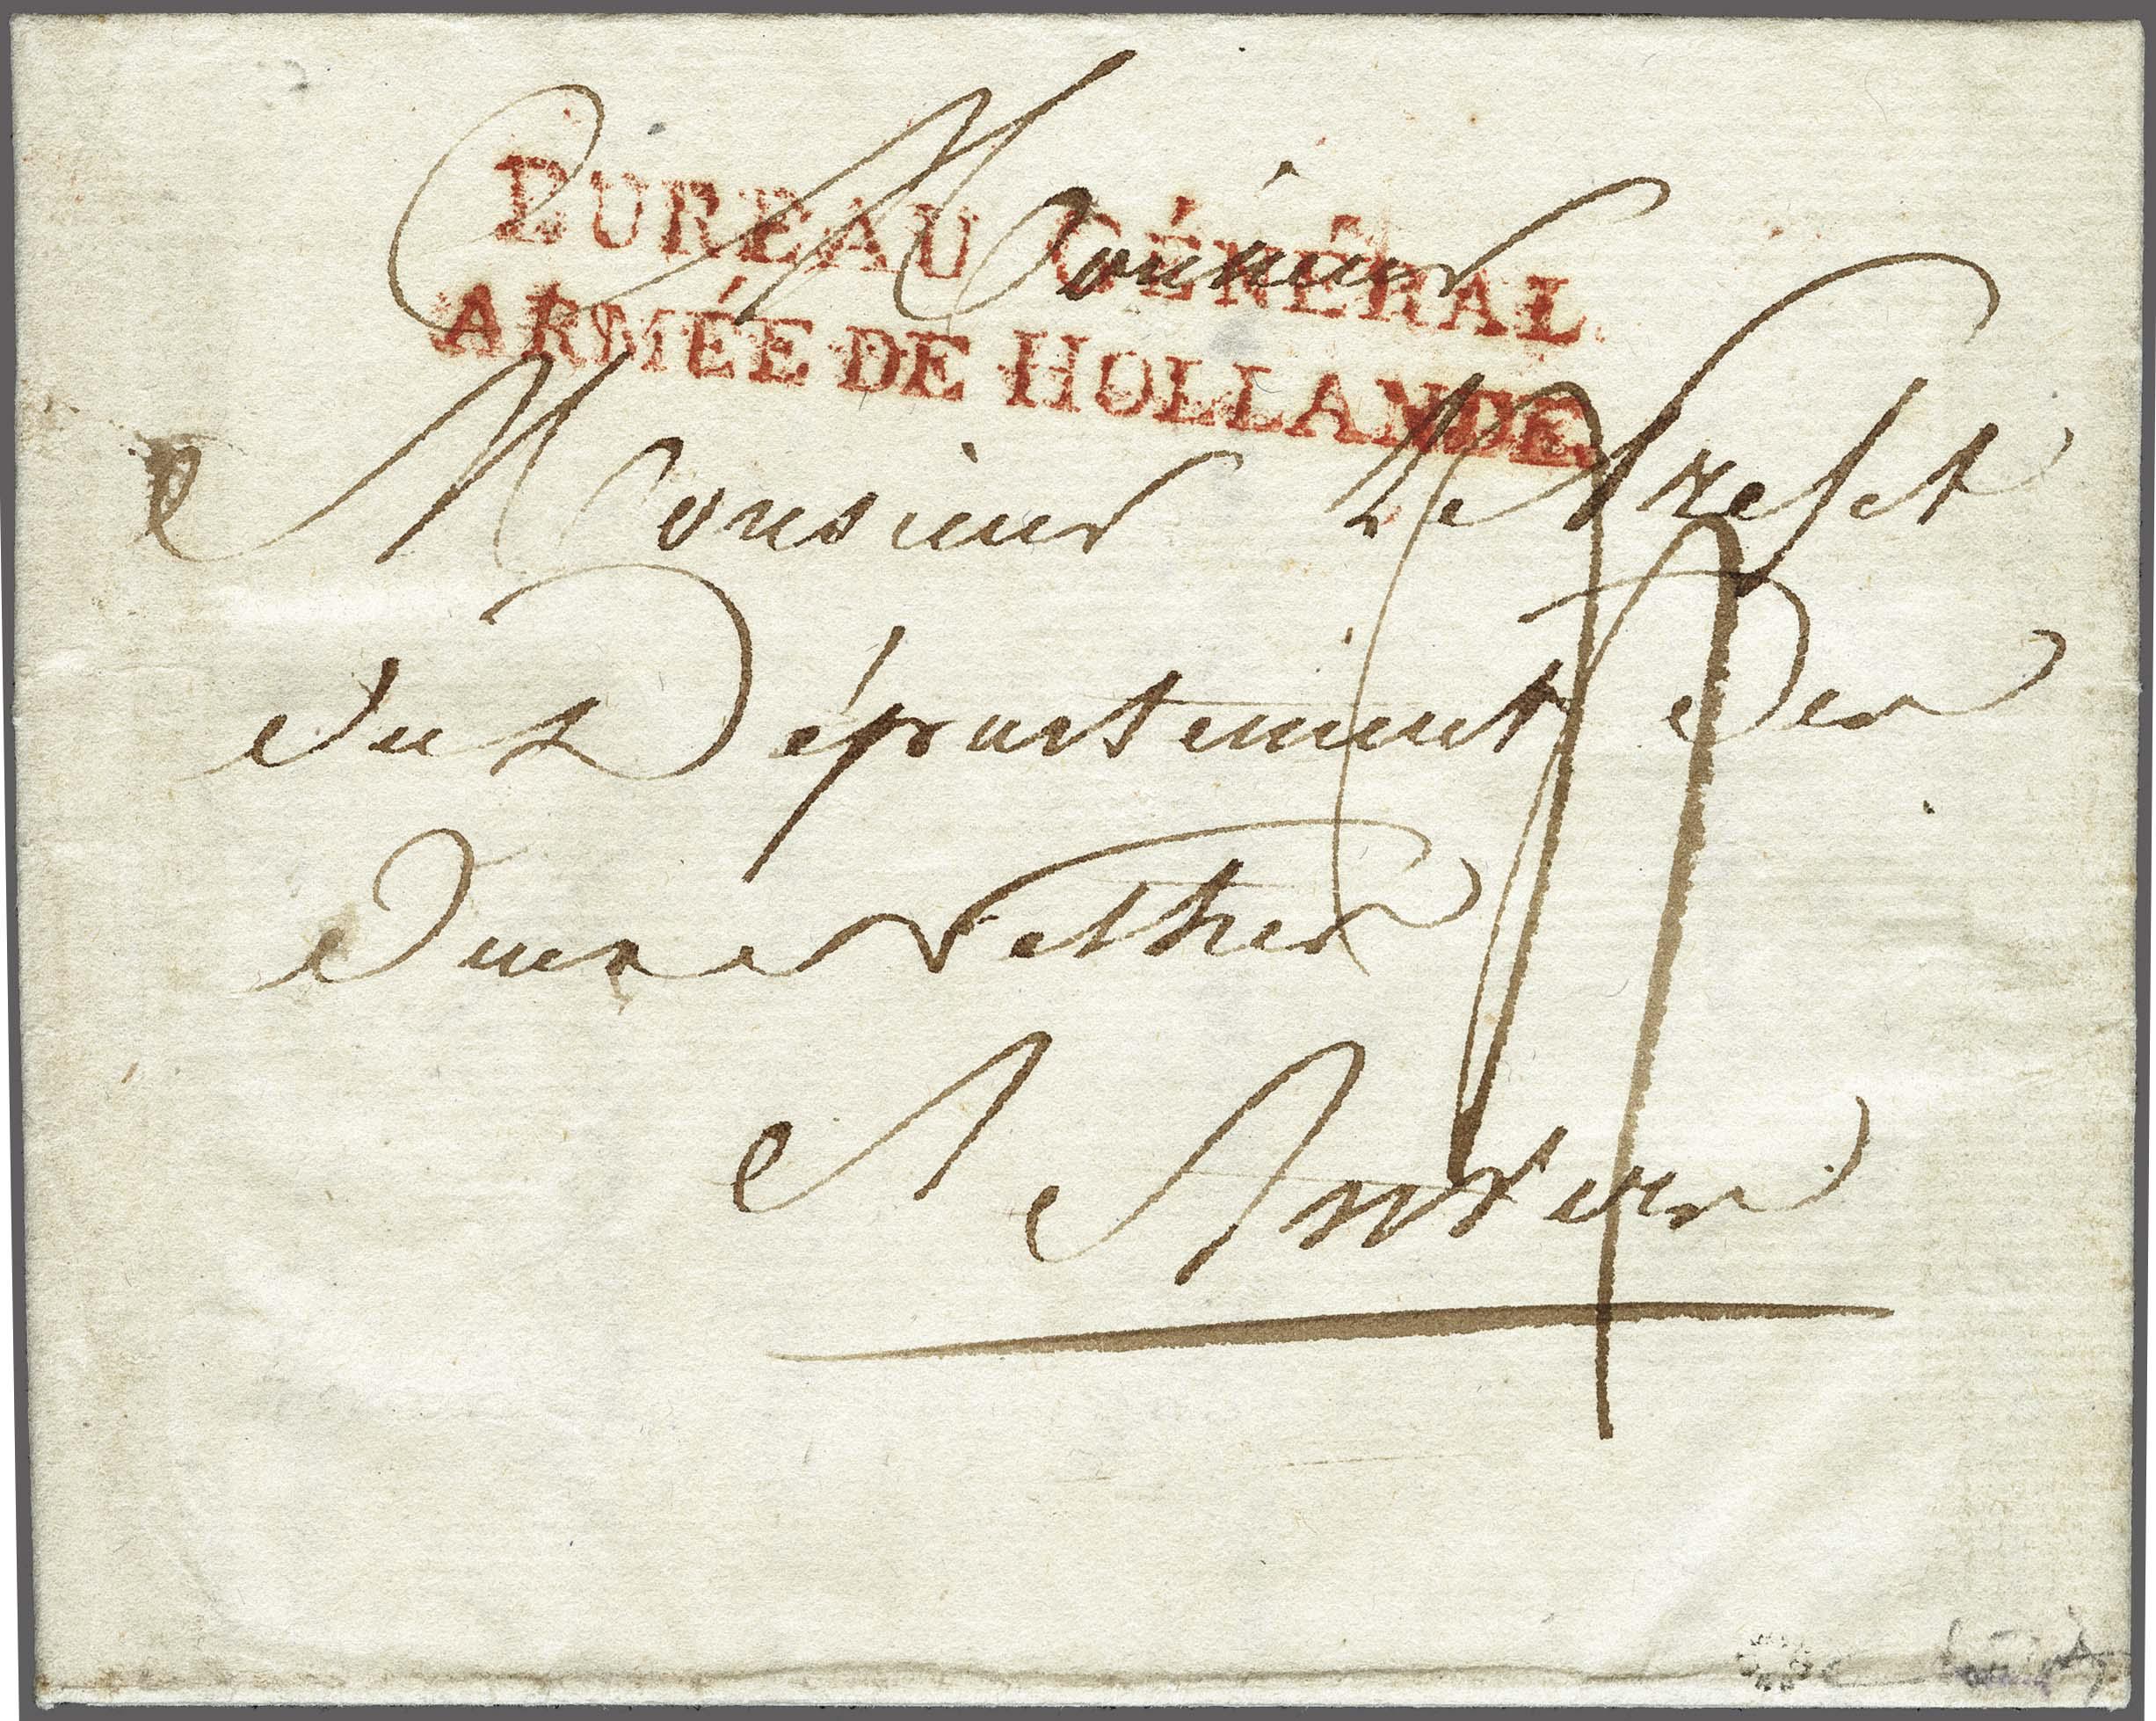 Monsieur
BUREAU GÉNÉRAL
ARMÉE DE HOLLANDE
Monsieur Le Prefet
du Département des
deux Nethes
A Anvers